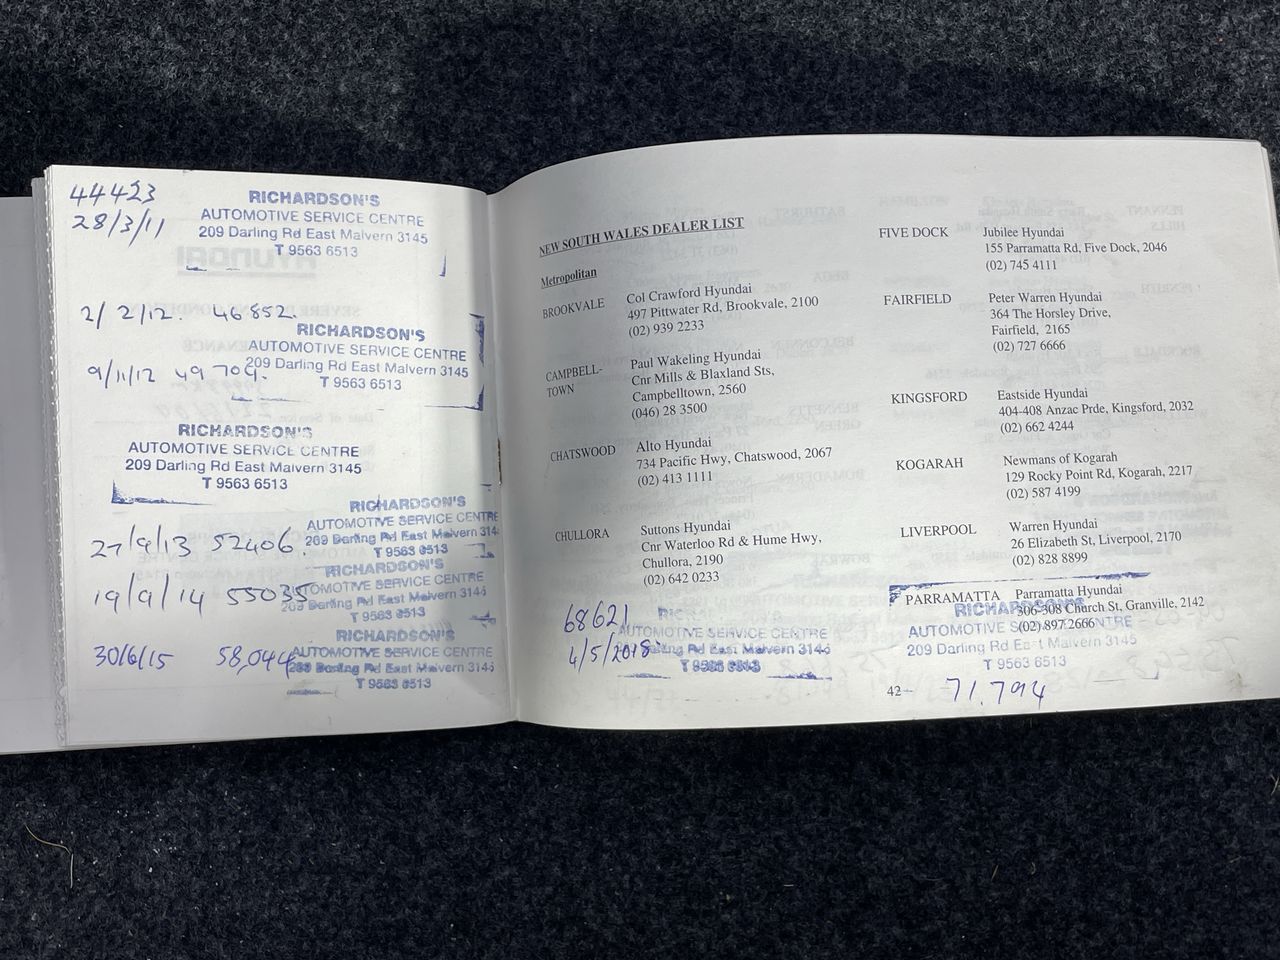 44423
28/3/11
RICHARDSON'S
AUTOMOTIVE SERVICE CENTRE
209 Darling Rd East Malvern 3145
T 9563 6513
2/2/12. 46852.
RICHARDSON'S
AUTOMOTIVE SERVICE CENTRE
209 Darling Rd East Malvern 3145
T 9563 6513
9/11/12 49704.
RICHARDSON'S
AUTOMOTIVE SERVICE CENTRE
209 Darling Rd East Malvern 3145
T 9563 6513
27/9/13 52406.
RICHARDSON'S
AUTOMOTIVE SERVICE CENTRE
209 Darling Rd East Malvern 3145
T 9563 6513
19/9/14 55035
RICHARDSON'S
AUTOMOTIVE SERVICE CENTRE
209 Darling Rd East Malvern 3145
T 9563 6513
30/6/15 58,044
RICHARDSON'S
AUTOMOTIVE SERVICE CENTRE
209 Darling Rd East Malvern 3145
T 9563 6513
NEW SOUTH WALES DEALER LIST
Metropolitan
BROOKVALE Col Crawford Hyundai
497 Pittwater Rd, Brookvale, 2100
(02) 939 2233
CAMPBELL- Paul Wakeling Hyundai
TOWN Cnr Mills & Blaxland Sts,
Campbelltown, 2560
(046) 28 3500
CHATSWOOD Alto Hyundai
734 Pacific Hwy, Chatswood, 2067
(02) 413 1111
CHULLORA Suttons Hyundai
Cnr Waterloo Rd & Hume Hwy,
Chullora, 2190
(02) 642 0233
68621
4/5/2018
AUTOMOTIVE SERVICE CENTRE
Darling Rd East Malvern 3145
T 9563 6513
FIVE DOCK Jubilee Hyundai
155 Parramatta Rd, Five Dock, 2046
(02) 745 4111
FAIRFIELD Peter Warren Hyundai
364 The Horsley Drive,
Fairfield, 2165
(02) 727 6666
KINGSFORD Eastside Hyundai
404-408 Anzac Prde, Kingsford, 2032
(02) 662 4244
KOGARAH Newmans of Kogarah
129 Rocky Point Rd, Kogarah, 2217
(02) 587 4199
LIVERPOOL Warren Hyundai
26 Elizabeth St, Liverpool, 2170
(02) 828 8899
PARRAMATTA Parramatta Hyundai
306-308 Church St, Granville, 2142
(02) 897 2666
RICHARDSON'S
AUTOMOTIVE SERVICE CENTRE
209 Darling Rd East Malvern 3145
T 9563 6513
42
71,794